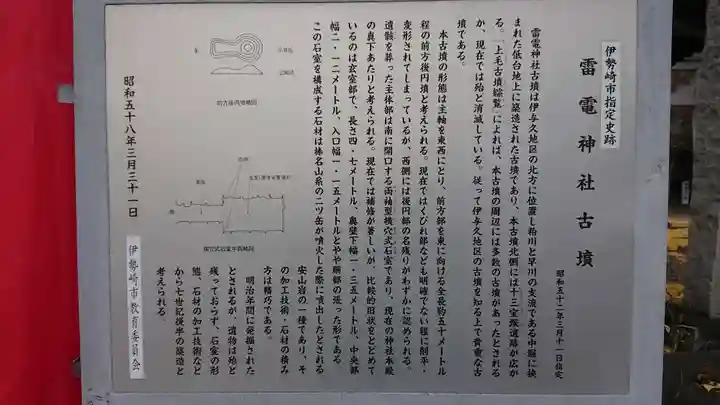 伊勢崎市指定史跡
雷電神社古墳
昭和五十二年三月十一日指定
雷電神社古墳は伊与久地区の北方に位置し粕川と早川の支流である中堀に挟
まれた低台地上に築造された古墳であり、本古墳北側には十三宝塚遺跡が広が
る。「上毛古墳綜覧」によれば、本古墳の周辺には多数の古墳があったとされる
が、現在では殆と消滅している。従って伊与久地区の古墳を知る上で貴重な古
墳である。
本古墳の形態は主軸を東西にとり、前方部を東に向ける全長約五十メートル
程の前方後円墳と考えられる。現在ではくびれ部なども明確でない程に削平・
変形されてしまっているが、西側には後円部の名残りがわずかに認められる。
遺骸を葬った主体部は南に開口する両袖型横穴式石室であり、現在の神社本殿
の真下あたりと考えられる。現在では補修が著しいが、比較的旧状をとどめて
いるのは玄室部で、長さ四・七メートル、奥壁下幅一・三五メートル、中央部
幅二・一二メートル、入口幅一・一五メートルとやや胴部の張った形である
この石室を構成する石材は榛名山系の二ツ岳が噴火した際に噴出したとされる
安山岩の一種であり、そ
の加工技術・石材の積み
方は精巧である。
明治年間に発掘された
とされるが、遺物は殆と
残っておらず、石室の形
態、石材の加工技術など
から七世紀後半の築造と
考えられる
前方後円墳略図
横穴式石室平面略図
昭和五十八年三月三十一日
伊勢崎市教育委員会